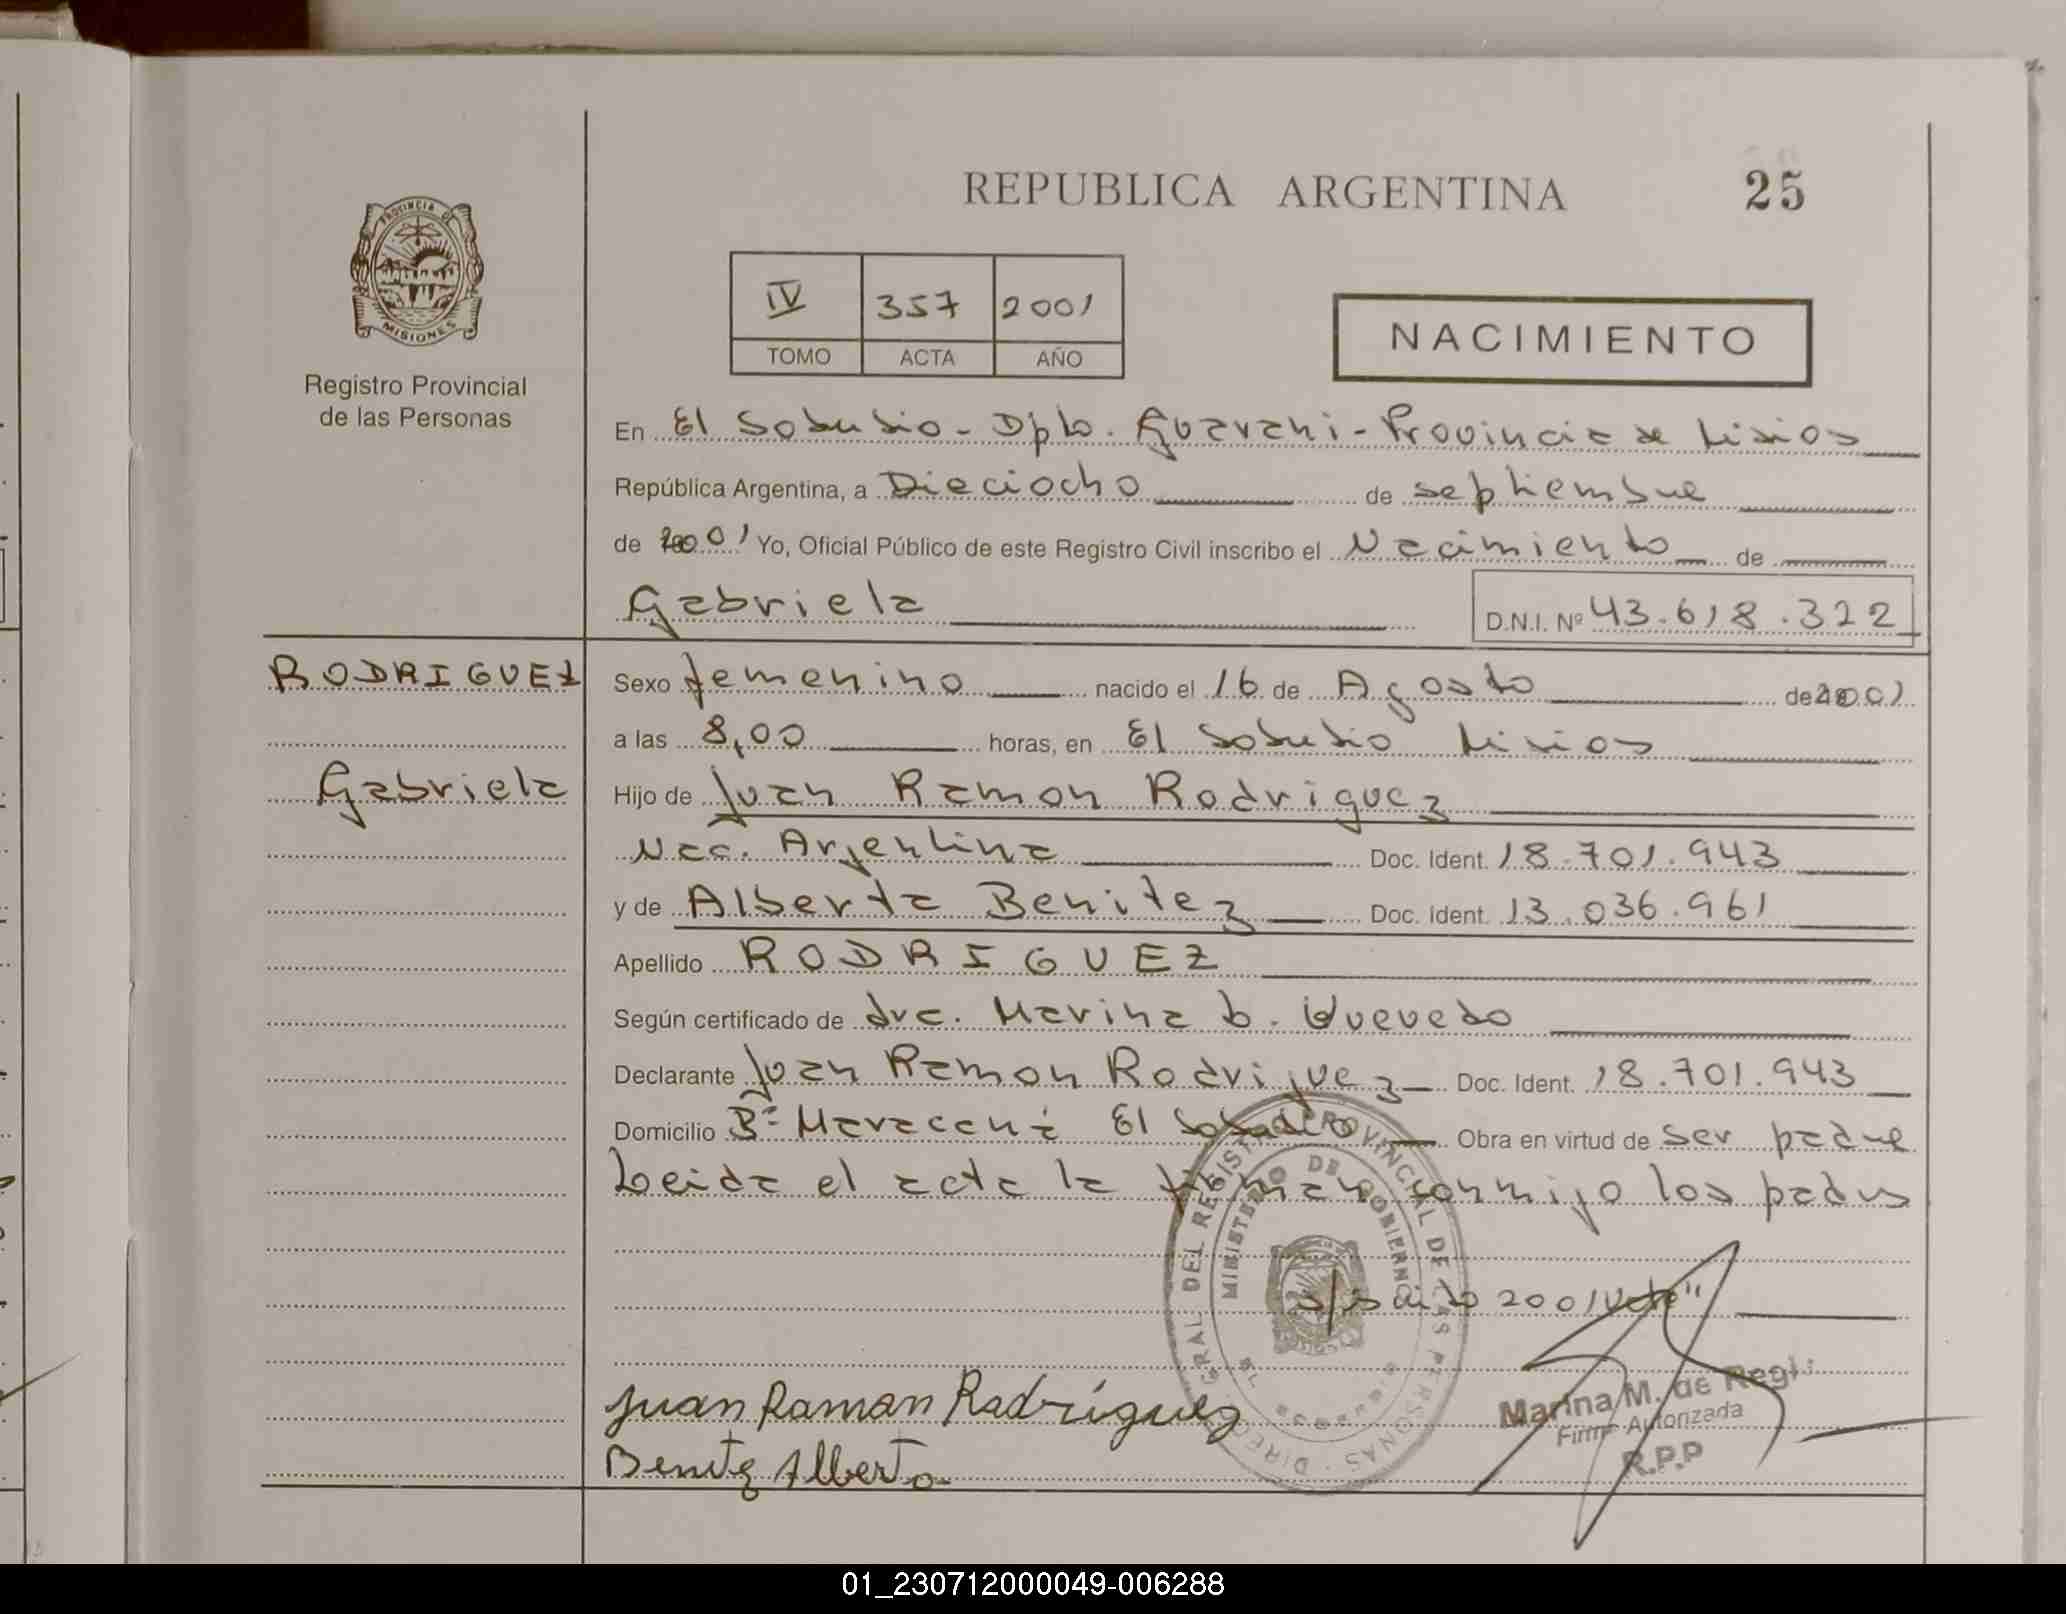 REPUBLICA ARGENTINA
25
PROVINCIA DE
MISIONES
Registro Provincial
de las Personas
IV 357 2001
TOMO ACTA AÑO
NACIMIENTO
En El Soberbio - Dpto. Guarani - Provincia de Misiones
República Argentina, a Dieciocho de septiembre
de 2001 Yo, Oficial Público de este Registro Civil inscribo el Nacimiento de
Gabriela D.N.I. Nº 43.618.322
RODRIGUEZ
Gabriela
Sexo femenino nacido el 16 de Agosto de 2001
a las 8,00 horas, en El Soberbio Misiones
Hijo de Juan Ramon Rodriguez
Nac. Argentina Doc. Ident. 18.701.943
y de Alberta Benitez Doc. Ident. 13.036.961
Apellido RODRIGUEZ
Según certificado de dra. Marina b. Quevedo
Declarante Juan Ramon Rodriguez Doc. Ident. 18.701.943
Domicilio Bº Maracaná El Soberbio Obra en virtud de ser padre
Leida el acta la firman conmigo los padres
2001
DIRECC GRAL DEL REGISTRO PROVINCIAL DE LAS PERSONAS
MINISTERIO DE GOBIERNO
EL SOBERBIO
Juan Raman Radríguez
Benitez Alberta
Marina M. de Regi
Firma Autorizada
R.P.P
01_230712000049-006288